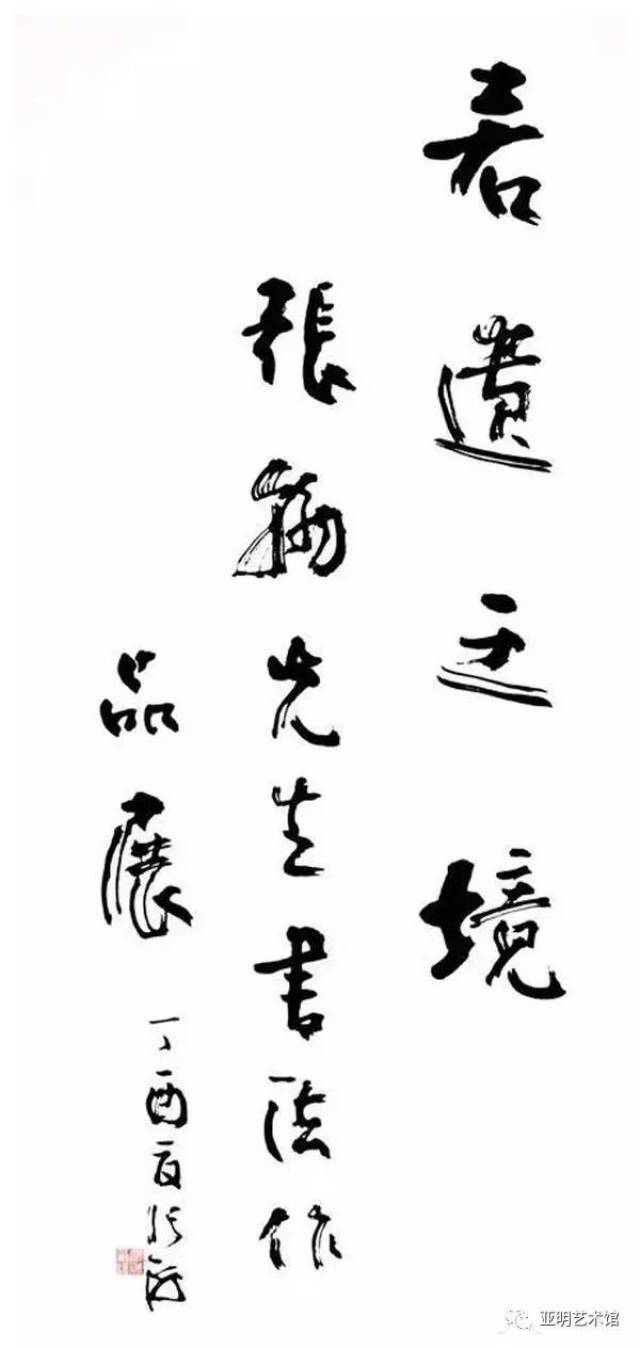 若遺境
張先生書法作
品展
丁酉夏
亚明艺术馆